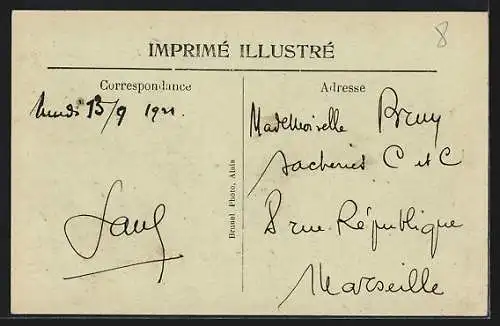 8
IMPRIMÉ ILLUSTRÉ
Correspondance
Adresse
Lundi 13/9 1921.
Mademoiselle Bruy
Sacheries C et C
8 rue République
Marseille
Saul
Brunel, Photo, Alais